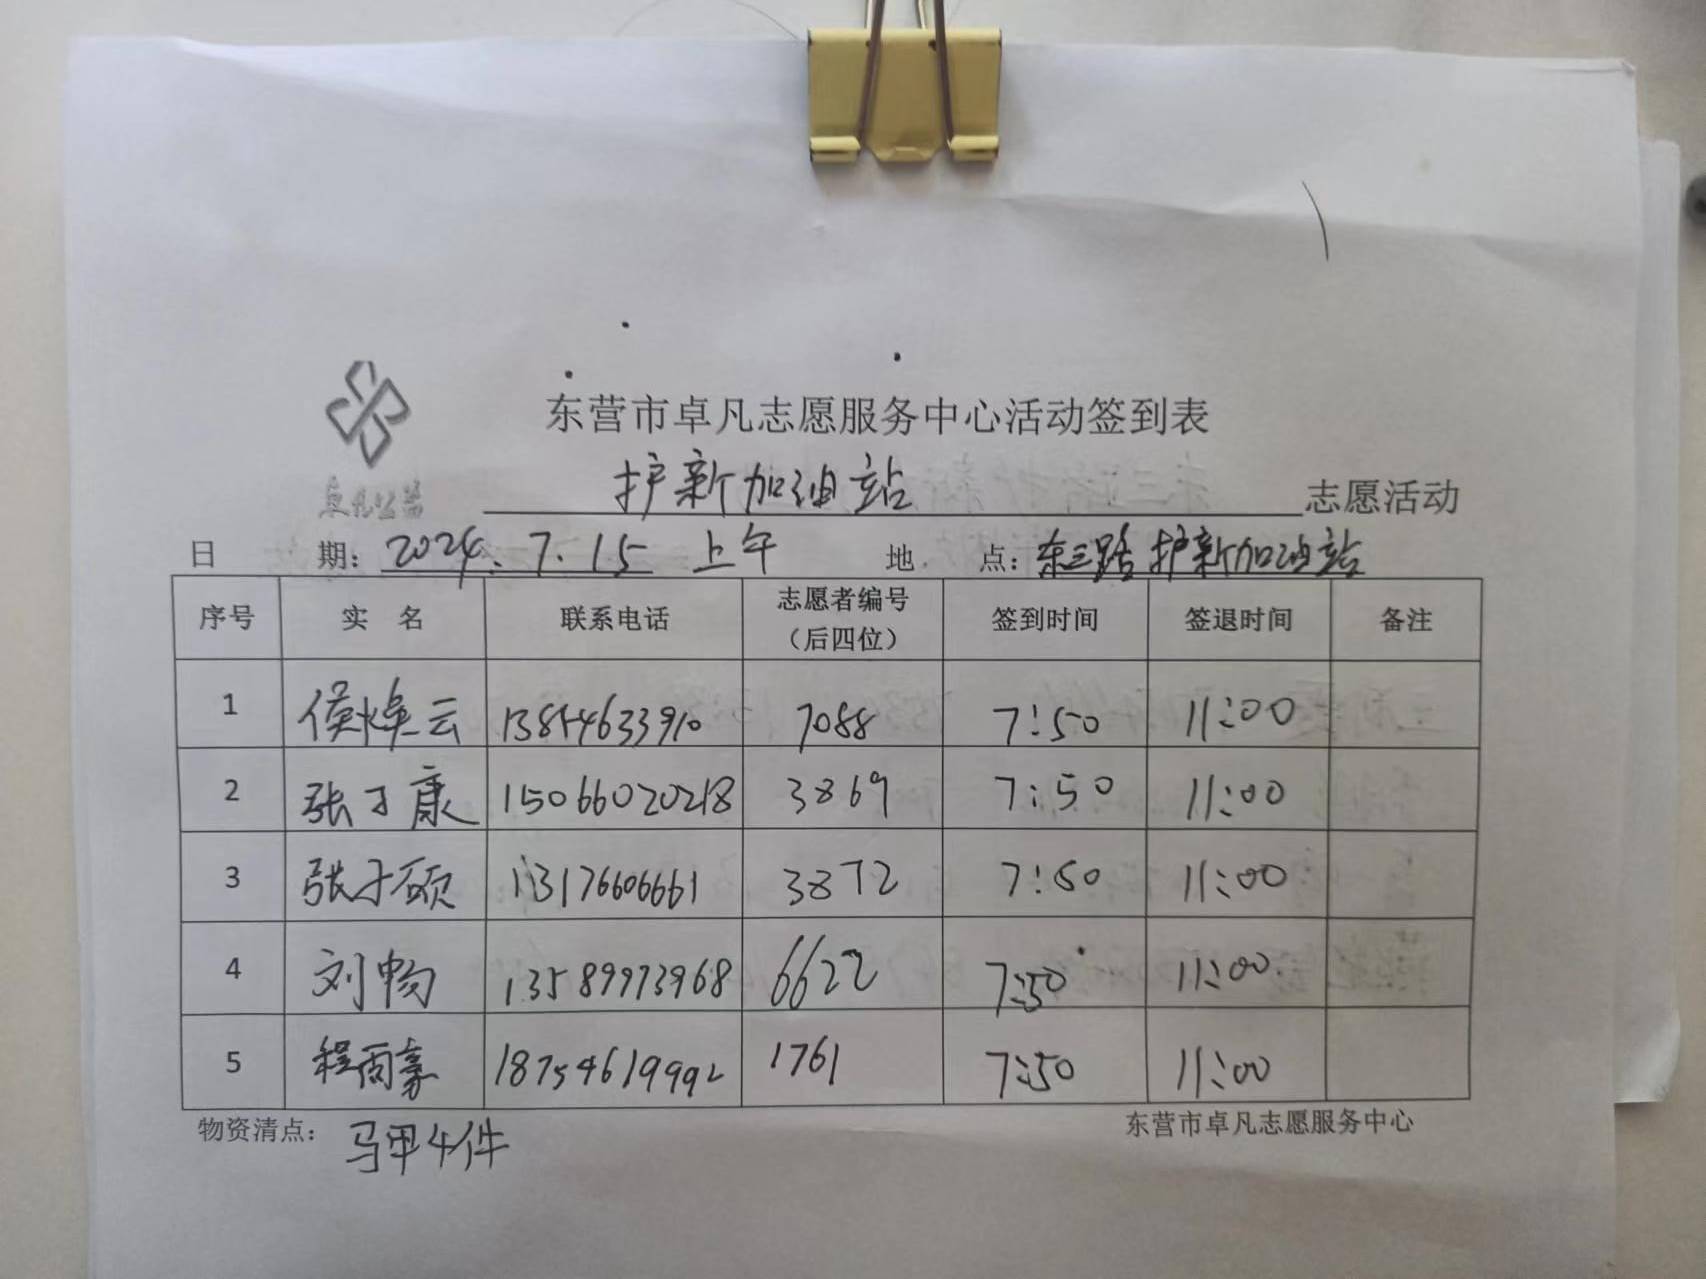 东营市卓凡志愿服务中心活动签到表
卓凡公益
护新加油站 志愿活动
日 期: 2024.7.15 上午 地 点: 东三路护新加油站
序号 实 名 联系电话 志愿者编号（后四位） 签到时间 签退时间 备注
1 侯焯云 13854633910 7088 7:50 11:00
2 张子康 15066020218 3869 7:50 11:00
3 张子硕 13176606661 3872 7:50 11:00
4 刘畅 13589973968 6622 7:50 11:00
5 程雨豪 18754619992 1761 7:50 11:00
物资清点: 马甲4件 东营市卓凡志愿服务中心